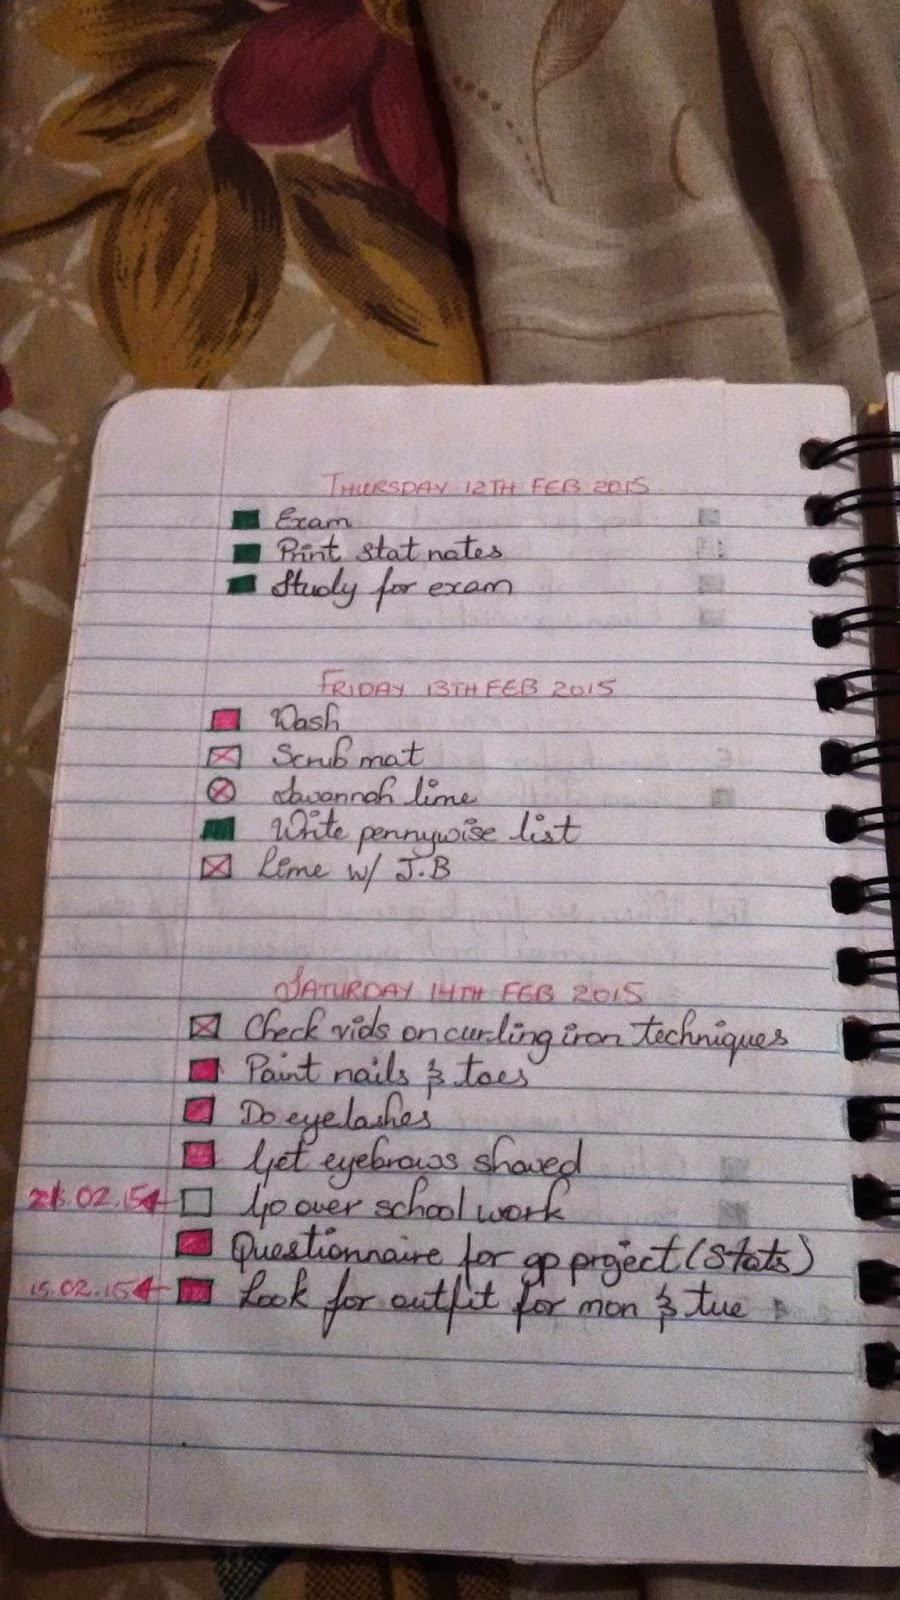 THURSDAY 12TH FEB 2015
Exam
Print stat notes
Study for exam
FRIDAY 13TH FEB 2015
Wash
Scrub mat
Savannah lime
Write pennywise list
Lime w/ J.B
SATURDAY 14TH FEB 2015
Check vids on curling iron techniques
Paint nails & toes
Do eyelashes
Get eyebrows shaved
Go over school work
Questionnaire for gp project (Stats)
15.02.15 Look for outfit for mon & tue